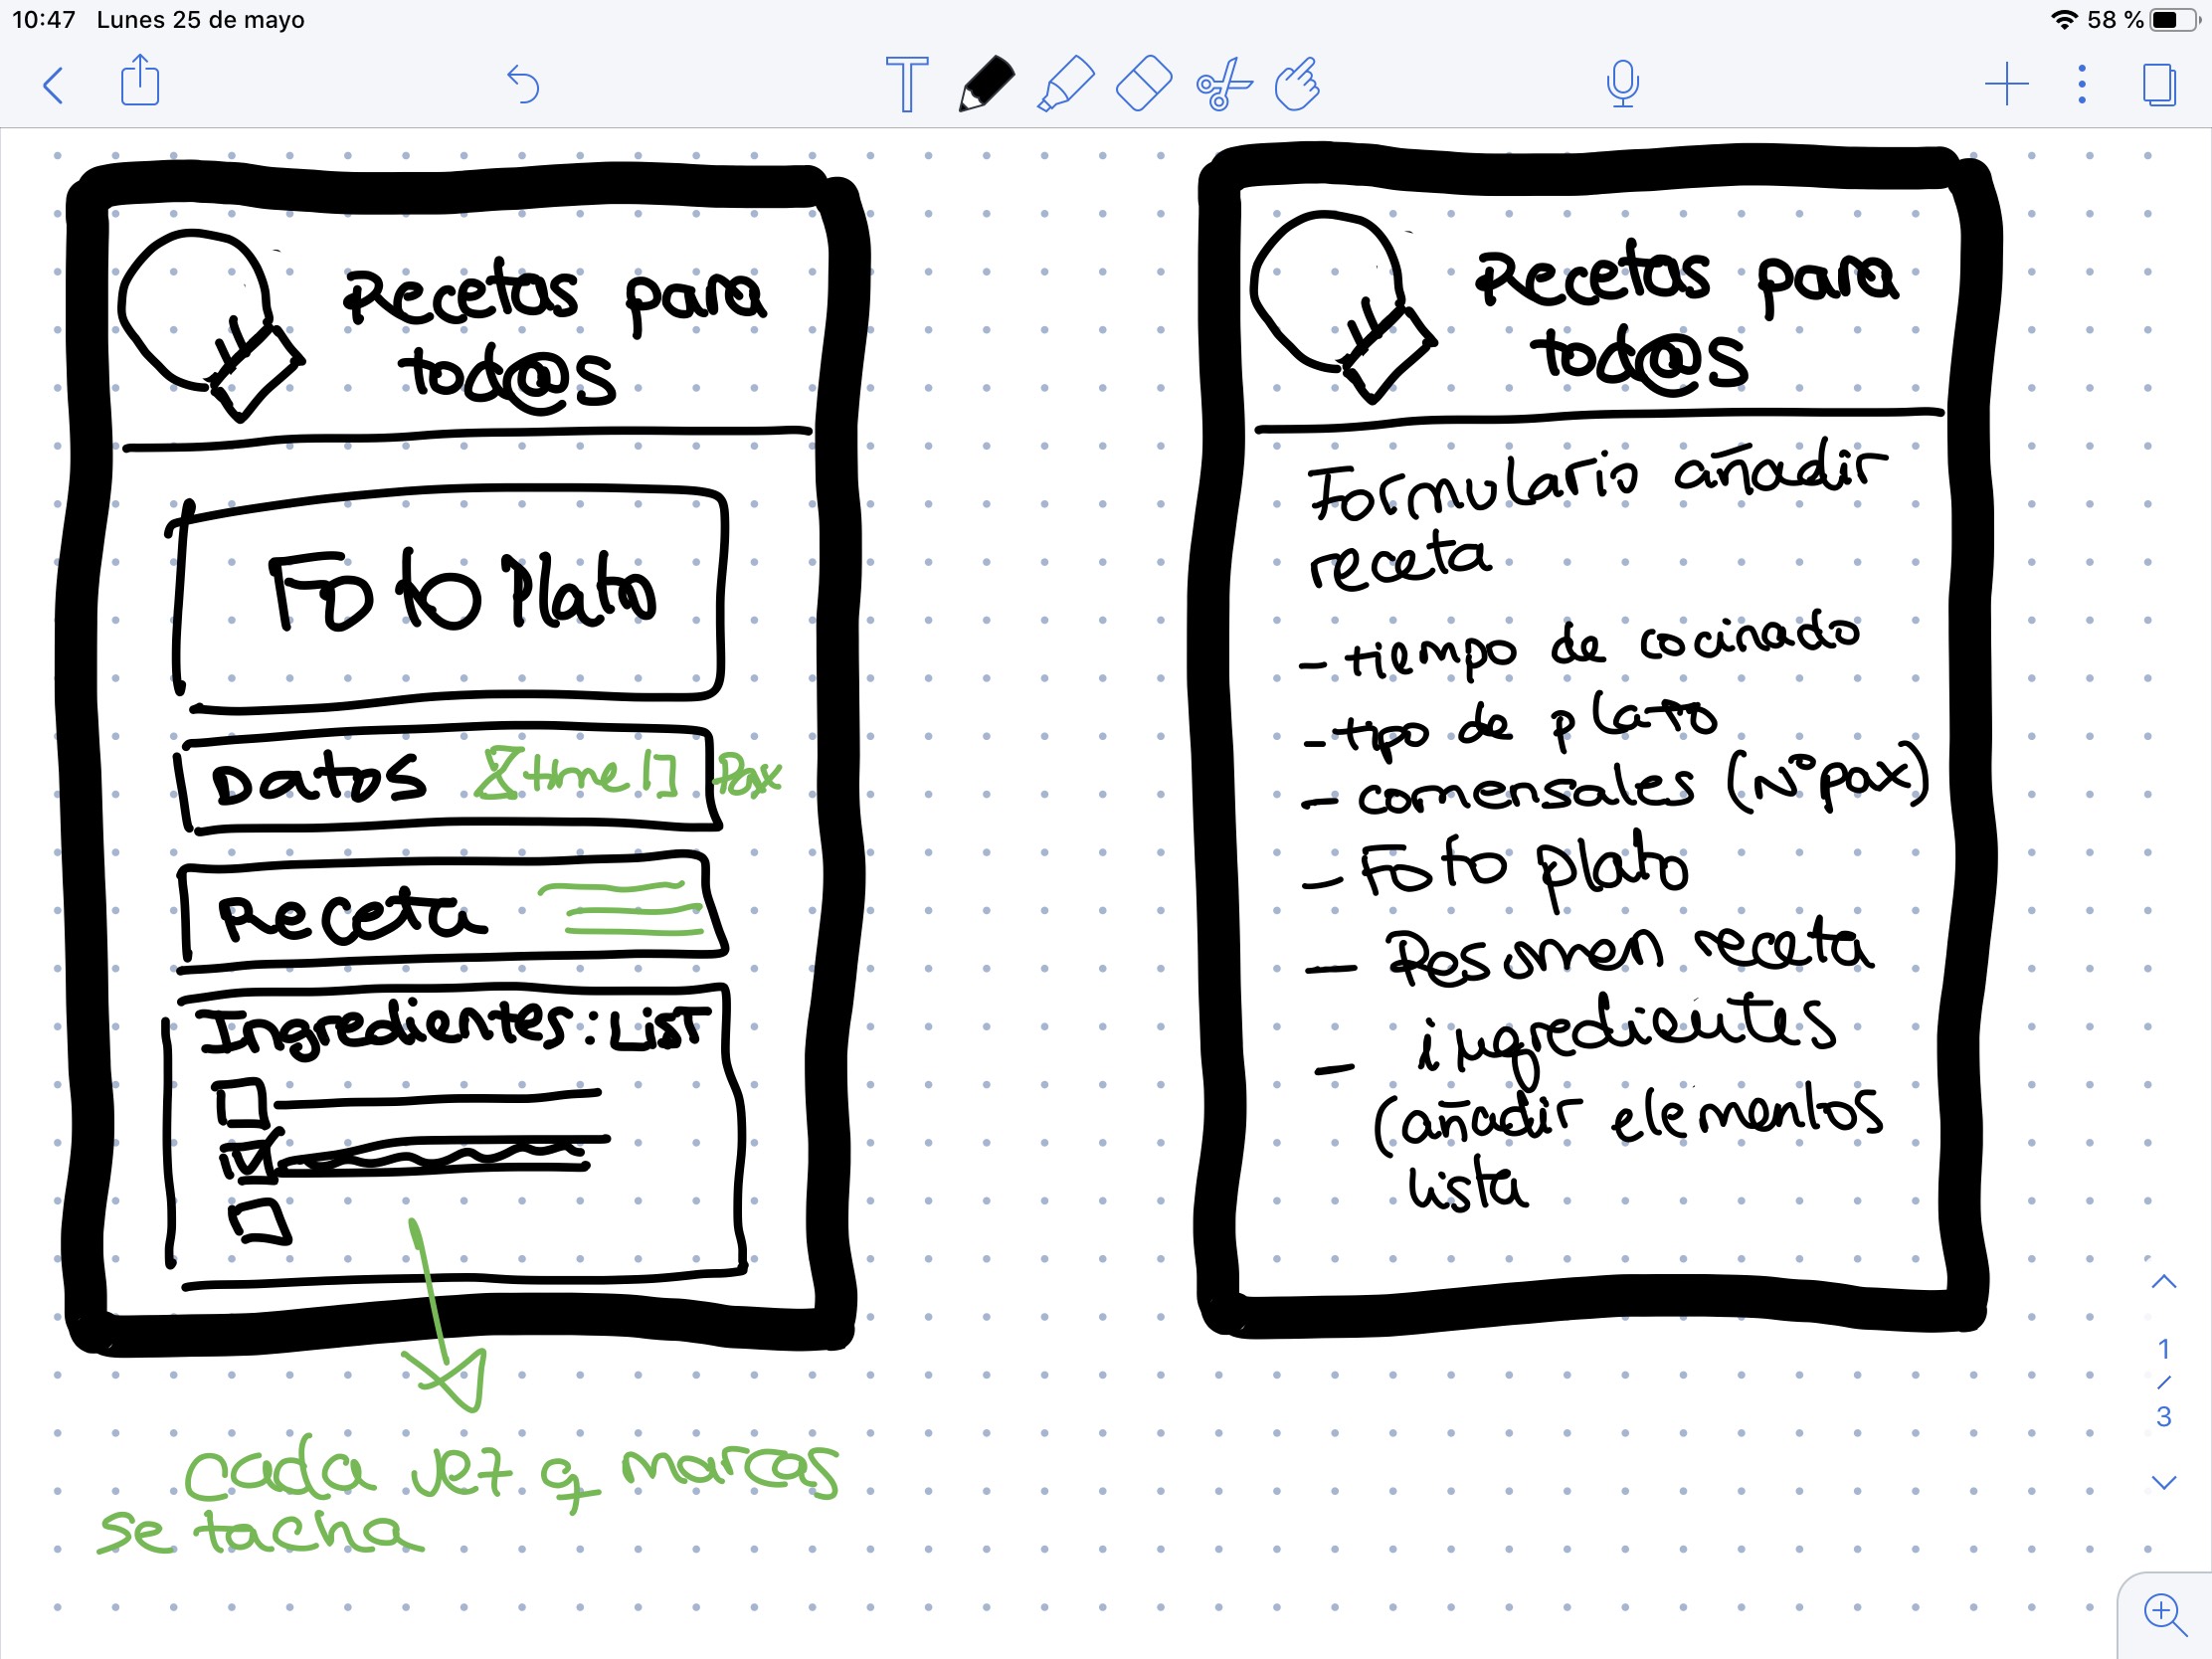 10:47 Lunes 25 de mayo 58 %
Recetas para
tod@s
Foto Plato
Datos time Pax
Receta
Ingredientes: List
cada vez q marcas
se tacha
Recetas para
tod@s
Formulario añadir
receta
- tiempo de cocinado
- tipo de plato
- comensales (Nº pax)
- Foto plato
- Resumen receta
- ingredientes
(añadir elementos
lista
1
/
3